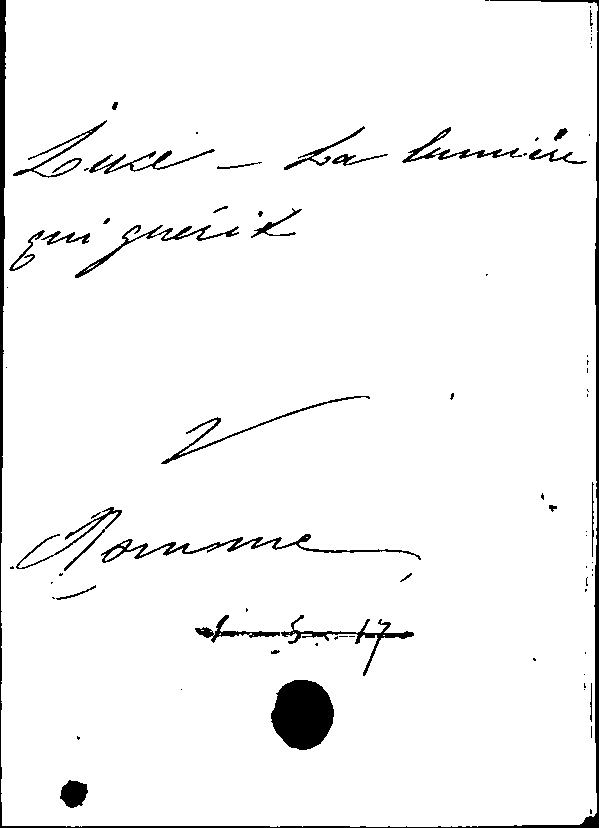 Luxe - La lumière
qui guérit
Romme
1 5 17